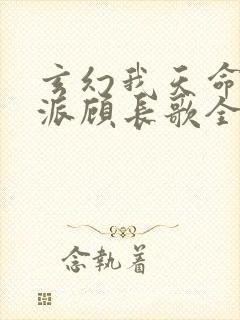 玄幻我天命
派顾长歌全
念执着